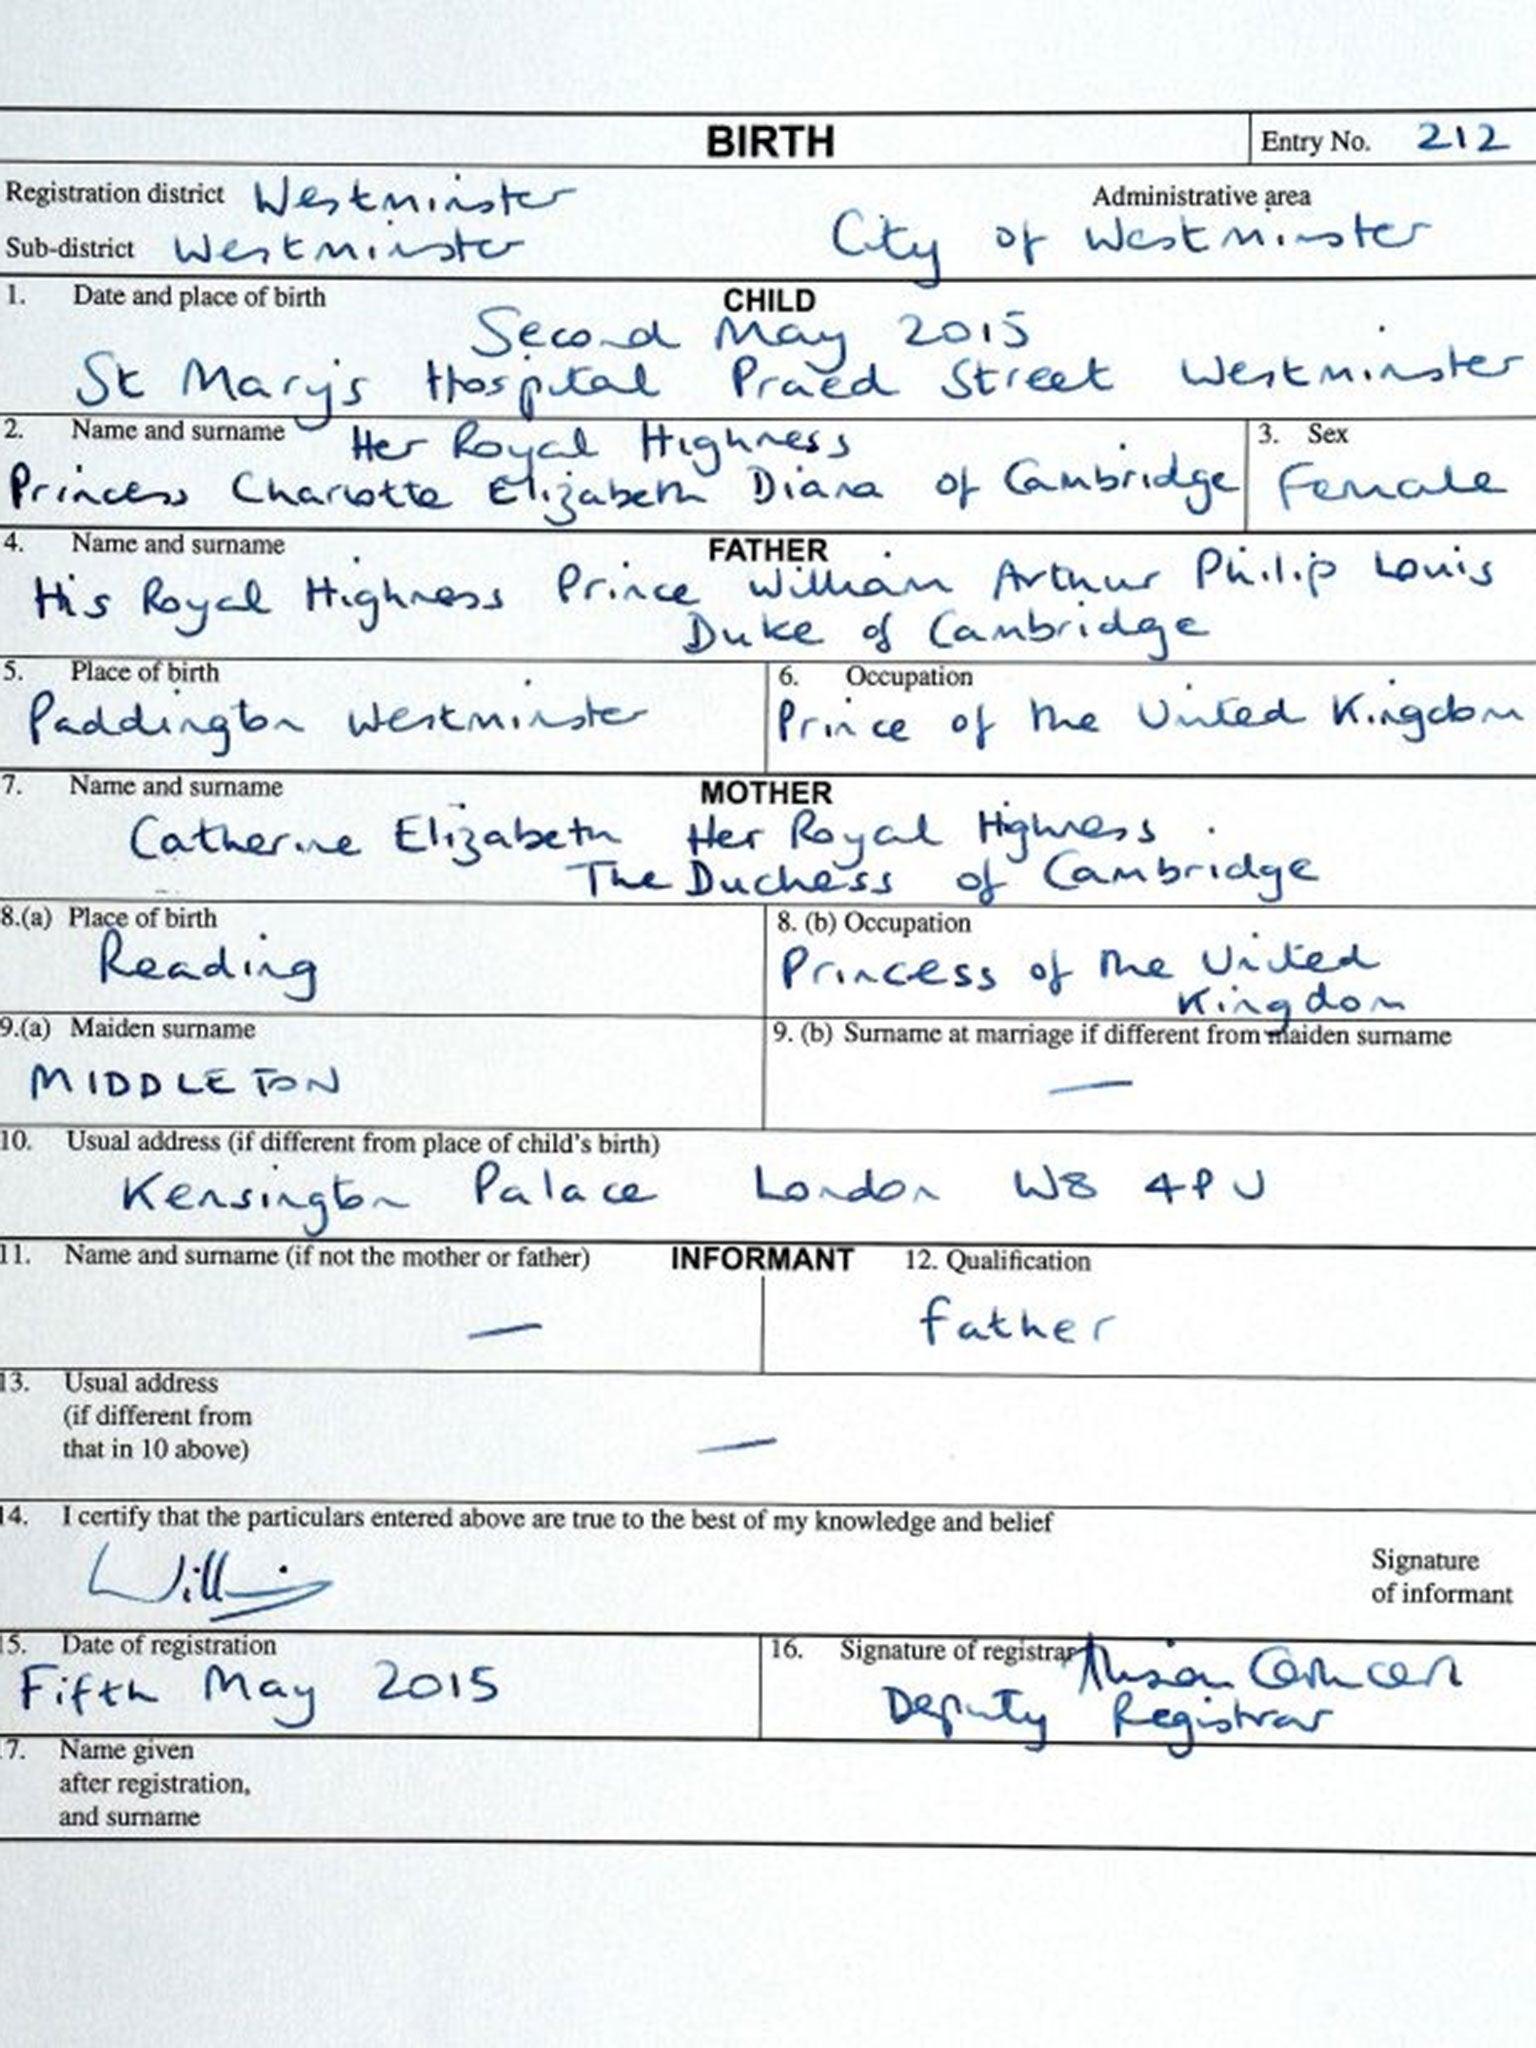 BIRTH
Entry No. 212
Registration district Westminster
Administrative area
Sub-district Westminster
City of Westminster
1. Date and place of birth
CHILD
Second May 2015
St Mary's Hospital Praed Street Westminster
2. Name and surname Her Royal Highness
Princess Charlotte Elizabeth Diana of Cambridge
3. Sex
Female
4. Name and surname
FATHER
His Royal Highness Prince William Arthur Philip Louis
Duke of Cambridge
5. Place of birth
Paddington Westminster
6. Occupation
Prince of the United Kingdom
7. Name and surname
MOTHER
Catherine Elizabeth Her Royal Highness
The Duchess of Cambridge
8.(a) Place of birth
Reading
8. (b) Occupation
Princess of the United
Kingdom
9.(a) Maiden surname
MIDDLETON
9. (b) Surname at marriage if different from maiden surname
—
10. Usual address (if different from place of child's birth)
Kensington Palace London W8 4PU
11. Name and surname (if not the mother or father)
—
INFORMANT
12. Qualification
Father
13. Usual address
(if different from
that in 10 above)
—
14. I certify that the particulars entered above are true to the best of my knowledge and belief
William
Signature
of informant
15. Date of registration
Fifth May 2015
16. Signature of registrar Alison
Deputy Registrar
17. Name given
after registration,
and surname